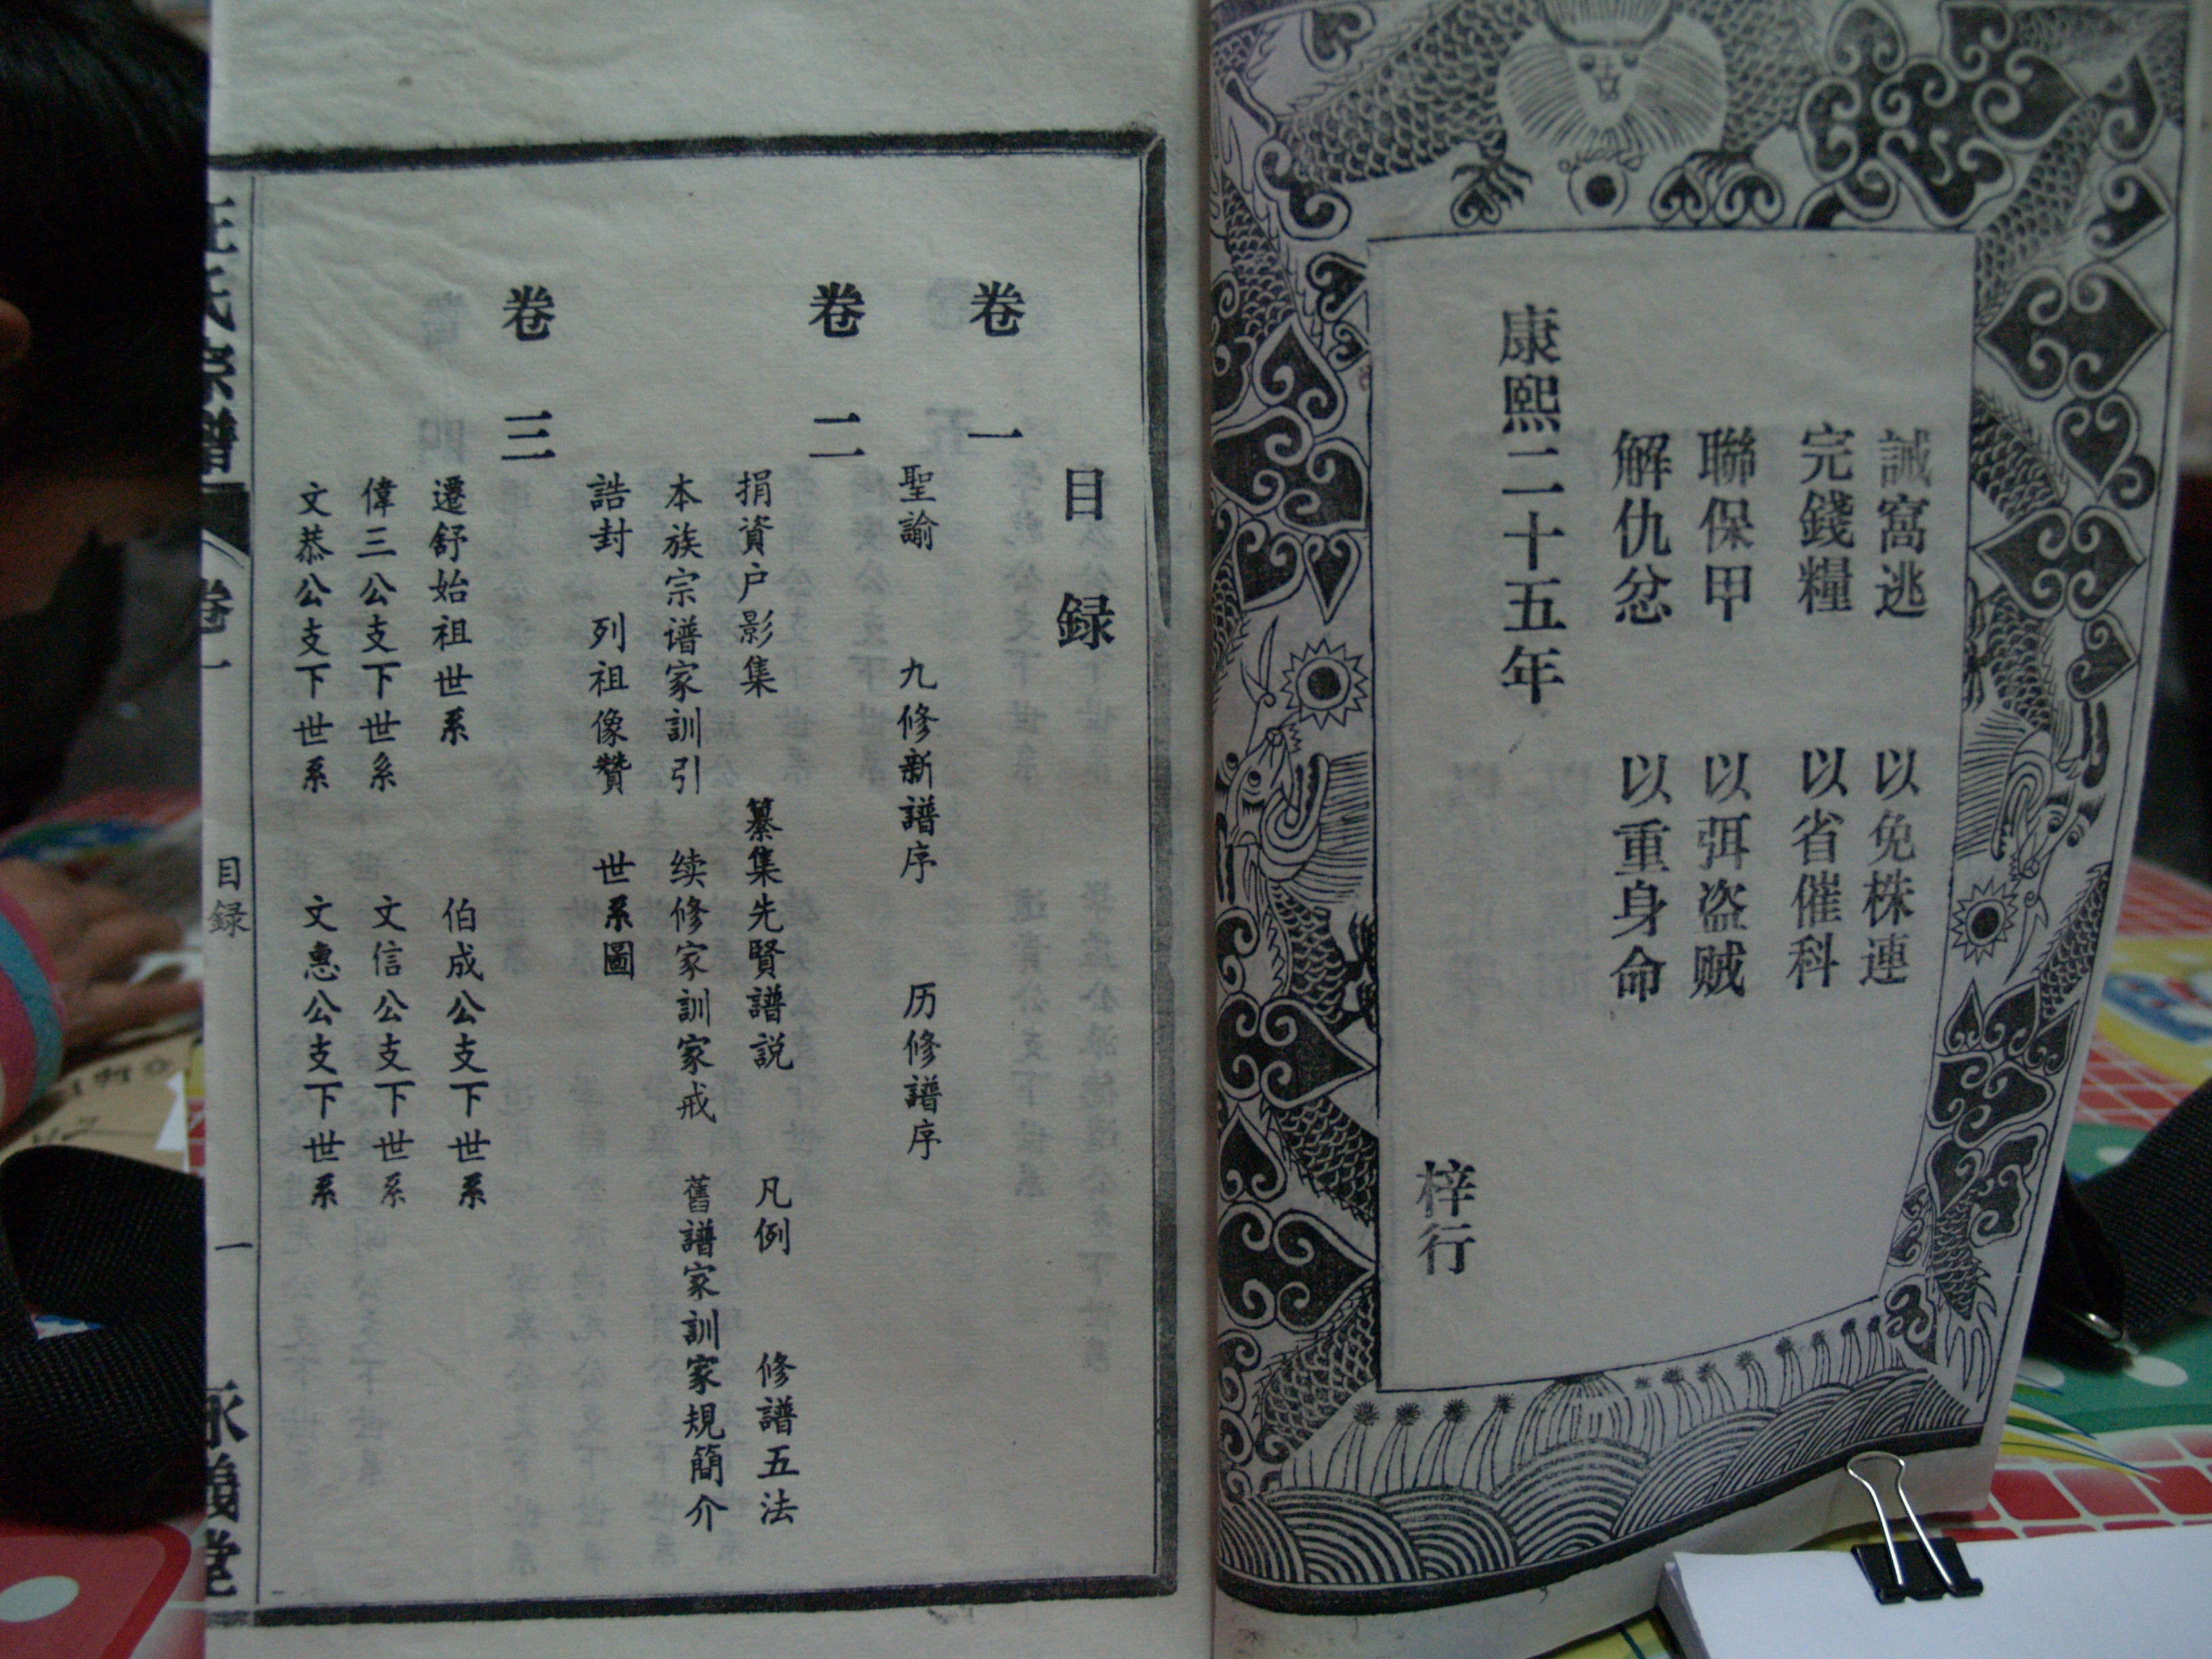 誠窩逃 以免株連
完錢糧 以省催科
聯保甲 以弭盗贼
解仇忿 以重身命
康熙二十五年
梓行
目録
卷一
聖諭 九修新譜序 历修譜序
卷二
捐資户影集 纂集先賢譜説 凡例 修譜五法
本族宗谱家訓引 续修家訓家戒 舊譜家訓家規簡介
誥封 列祖像贊 世系圖
卷三
遷舒始祖世系 伯成公支下世系
偉三公支下世系 文信公支下世系
文恭公支下世系 文惠公支下世系
氏宗譜 卷一 目録 一 永義堂